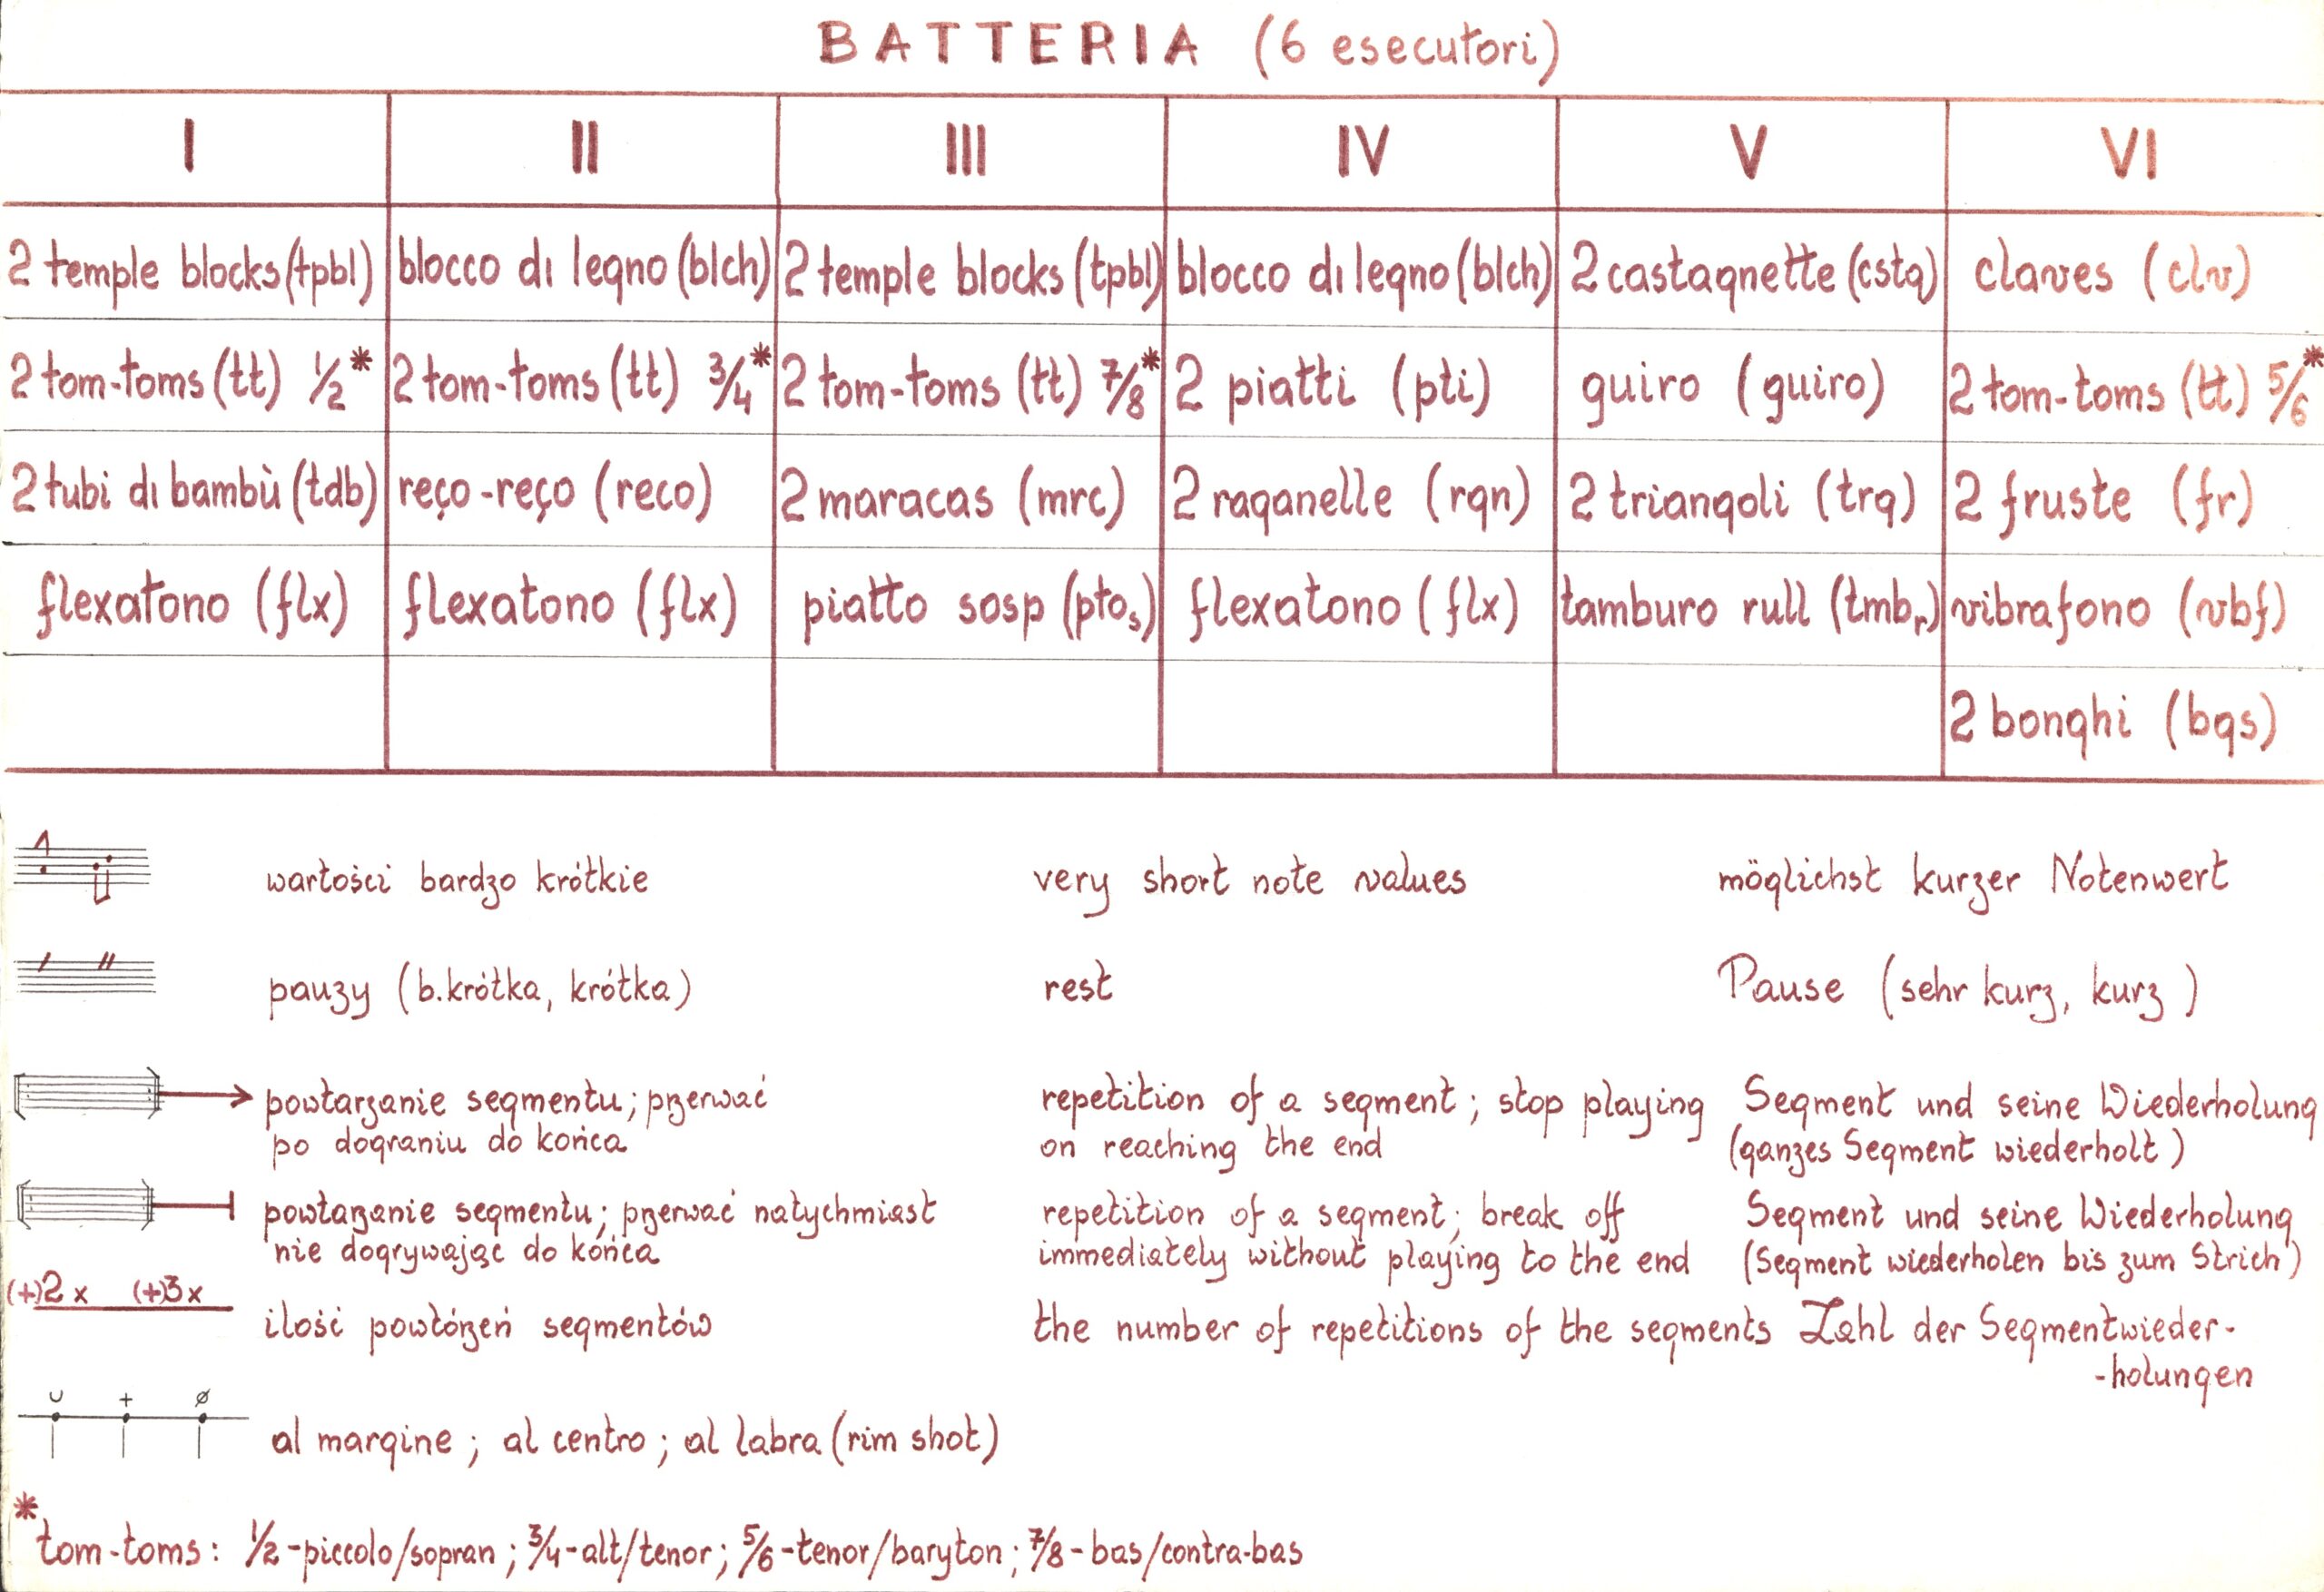 BATTERIA (6 esecutori)
I II III IV V VI
2 temple blocks (tpbl) blocco di legno (blch) 2 temple blocks (tpbl) blocco di legno (blch) 2 castagnette (cstg) claves (clv)
2 tom-toms (tt) 1/2* 2 tom-toms (tt) 3/4* 2 tom-toms (tt) 7/8* 2 piatti (pti) guiro (guiro) 2 tom-toms (tt) 5/6*
2 tubi di bambù (tdb) reço-reço (reco) 2 maracas (mrc) 2 raganelle (rgn) 2 triangoli (trg) 2 fruste (fr)
flexatono (flx) flexatono (flx) piatto sosp (ptos) flexatono (flx) tamburo rull (tmbr) vibrafono (vbf)
2 bonghi (bgs)
wartości bardzo krótkie very short note values möglichst kurzer Notenwert
pauzy (b.krótka, krótka) rest Pause (sehr kurz, kurz)
powtarzanie segmentu; przerwać repetition of a segment; stop playing Segment und seine Wiederholung
po dograniu do końca on reaching the end (ganzes Segment wiederholt)
powtarzanie segmentu; przerwać natychmiast repetition of a segment; break off Segment und seine Wiederholung
nie dogrywając do końca immediately without playing to the end (Segment wiederholen bis zum Strich)
(+)2x (+)3x
ilość powtórzeń segmentów the number of repetitions of the segments Zahl der Segmentwieder-
-holungen
∪ + ø
al margine; al centro; al labra (rim shot)
*tom-toms: 1/2-piccolo/sopran; 3/4-alt/tenor; 5/6-tenor/baryton; 7/8-bas/contra-bas